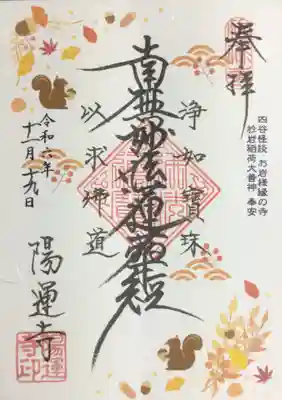 奉拝
四谷怪談 お岩様縁の寺
於岩稲荷大善神 奉安
浄如寶珠
南無妙法蓮華経
以求佛道
令和六年
十一月二十九日
陽運寺
陽運
寺印